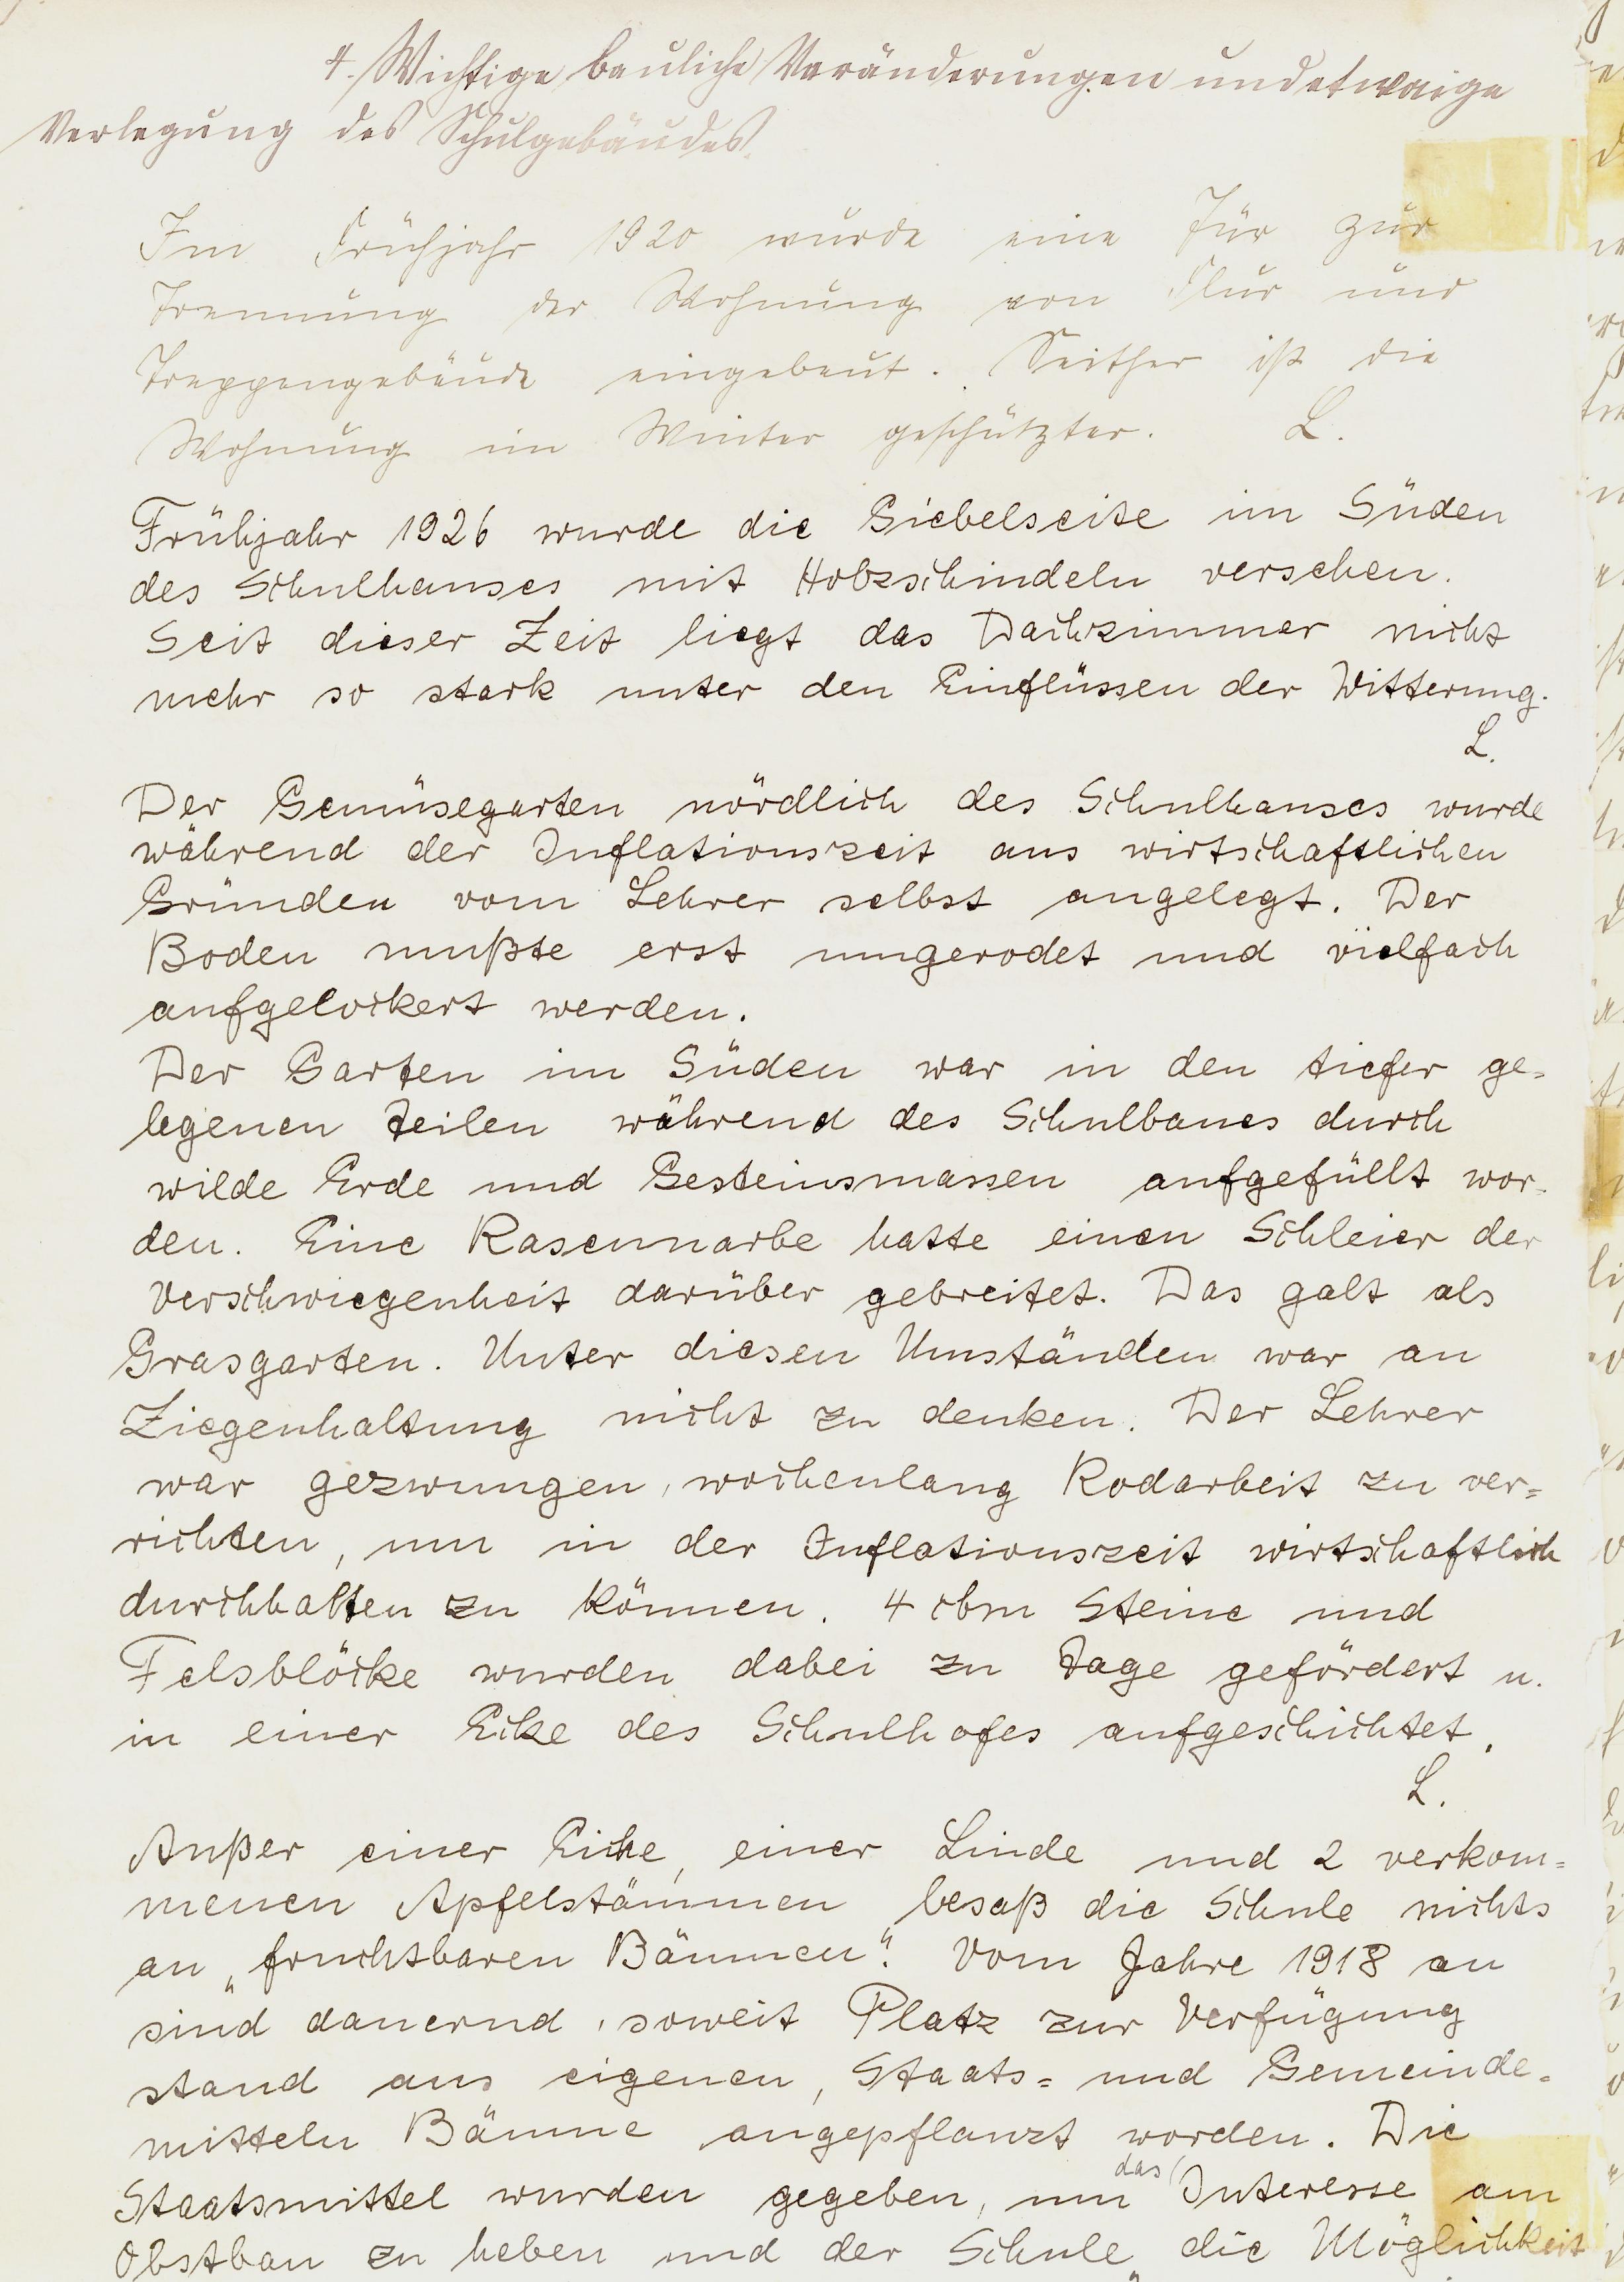 4. Wichtige bauliche Veränderungen und etwaige
Verlegung des Schulgebäudes.
Im Frühjahr 1920 wurde eine Tür zur
Trennung der Wohnung von Flur und
Treppengebäude eingebaut. Seither ist die
Wohnung im Winter geschützter. L.
Frühjahr 1926 wurde die Giebelseite im Süden
des Schulhauses mit Holzschindeln versehen.
Seit dieser Zeit liegt das Dachzimmer nicht
mehr so stark unter den Einflüssen der Witterung.
L.
Der Gemüsegarten nördlich des Schulhauses wurde
während der Inflationszeit aus wirtschaftlichen
Gründen vom Lehrer selbst angelegt. Der
Boden mußte erst umgerodet und vielfach
aufgelockert werden.
Der Garten im Süden war in den tiefer ge=
legenen Teilen während des Schulbaues durch
wilde Erde und Gesteinsmassen aufgefüllt wor=
den. Eine Rasennarbe hatte einen Schleier der
Verschwiegenheit darüber gebreitet. Das galt als
Grasgarten. Unter diesen Umständen war an
Ziegenhaltung nicht zu denken. Der Lehrer
war gezwungen, wochenlang Rodarbeit zu ver=
richten, um in der Inflationszeit wirtschaftlich
durchhalten zu können. 4 cbm Steine und
Felsblöcke wurden dabei zu Tage gefördert u.
in einer Ecke des Schulhofes aufgeschichtet.
L.
Außer einer Eiche, einer Linde und 2 verkom=
menen Apfelstämmen besaß die Schule nichts
an „fruchtbaren Bäumen“. Vom Jahre 1918 an
sind dauernd, soweit Platz zur Verfügung
stand aus eigenen, Staats= und Gemeinde=
mitteln Bäume angepflanzt worden. Die
Staatsmittel wurden gegeben, um das Interesse am
Obstbau zu heben und der Schule „die Möglichkeit